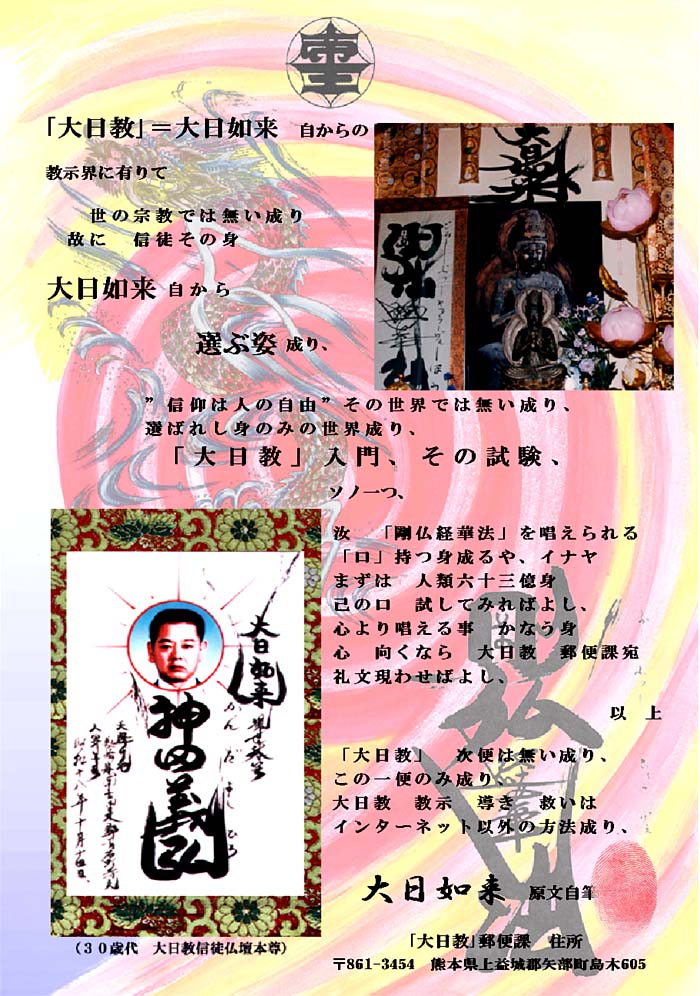 「大日教」＝大日如来　自からの
教示界に有りて
世の宗教では無い成り
故に　信徒その身
大日如来 自から
選ぶ姿 成り、
”信仰は人の自由”その世界では無い成り、
選ばれし身のみの世界成り、
「大日教」入門、その試験、
ソノ一つ、
汝　「剛仏経華法」を唱えられる
「口」持つ身成るや、イナヤ
まずは　人類六十三億身
己の口　試してみればよし、
心より唱える事　かなう身
心　向くなら　大日教　郵便課宛
礼文現わせばよし、
以　上
「大日教」　次便は無い成り、
この一便のみ成り
大日教　教示　導き　救いは
インターネット以外の方法成り、
大日如来　原文自筆
「大日教」郵便課　住所
〒861-3454　熊本県上益城郡矢部町島木605
大日如来
神田義弘
かんだ　よしひろ
（３０歳代　大日教信徒仏壇本尊）